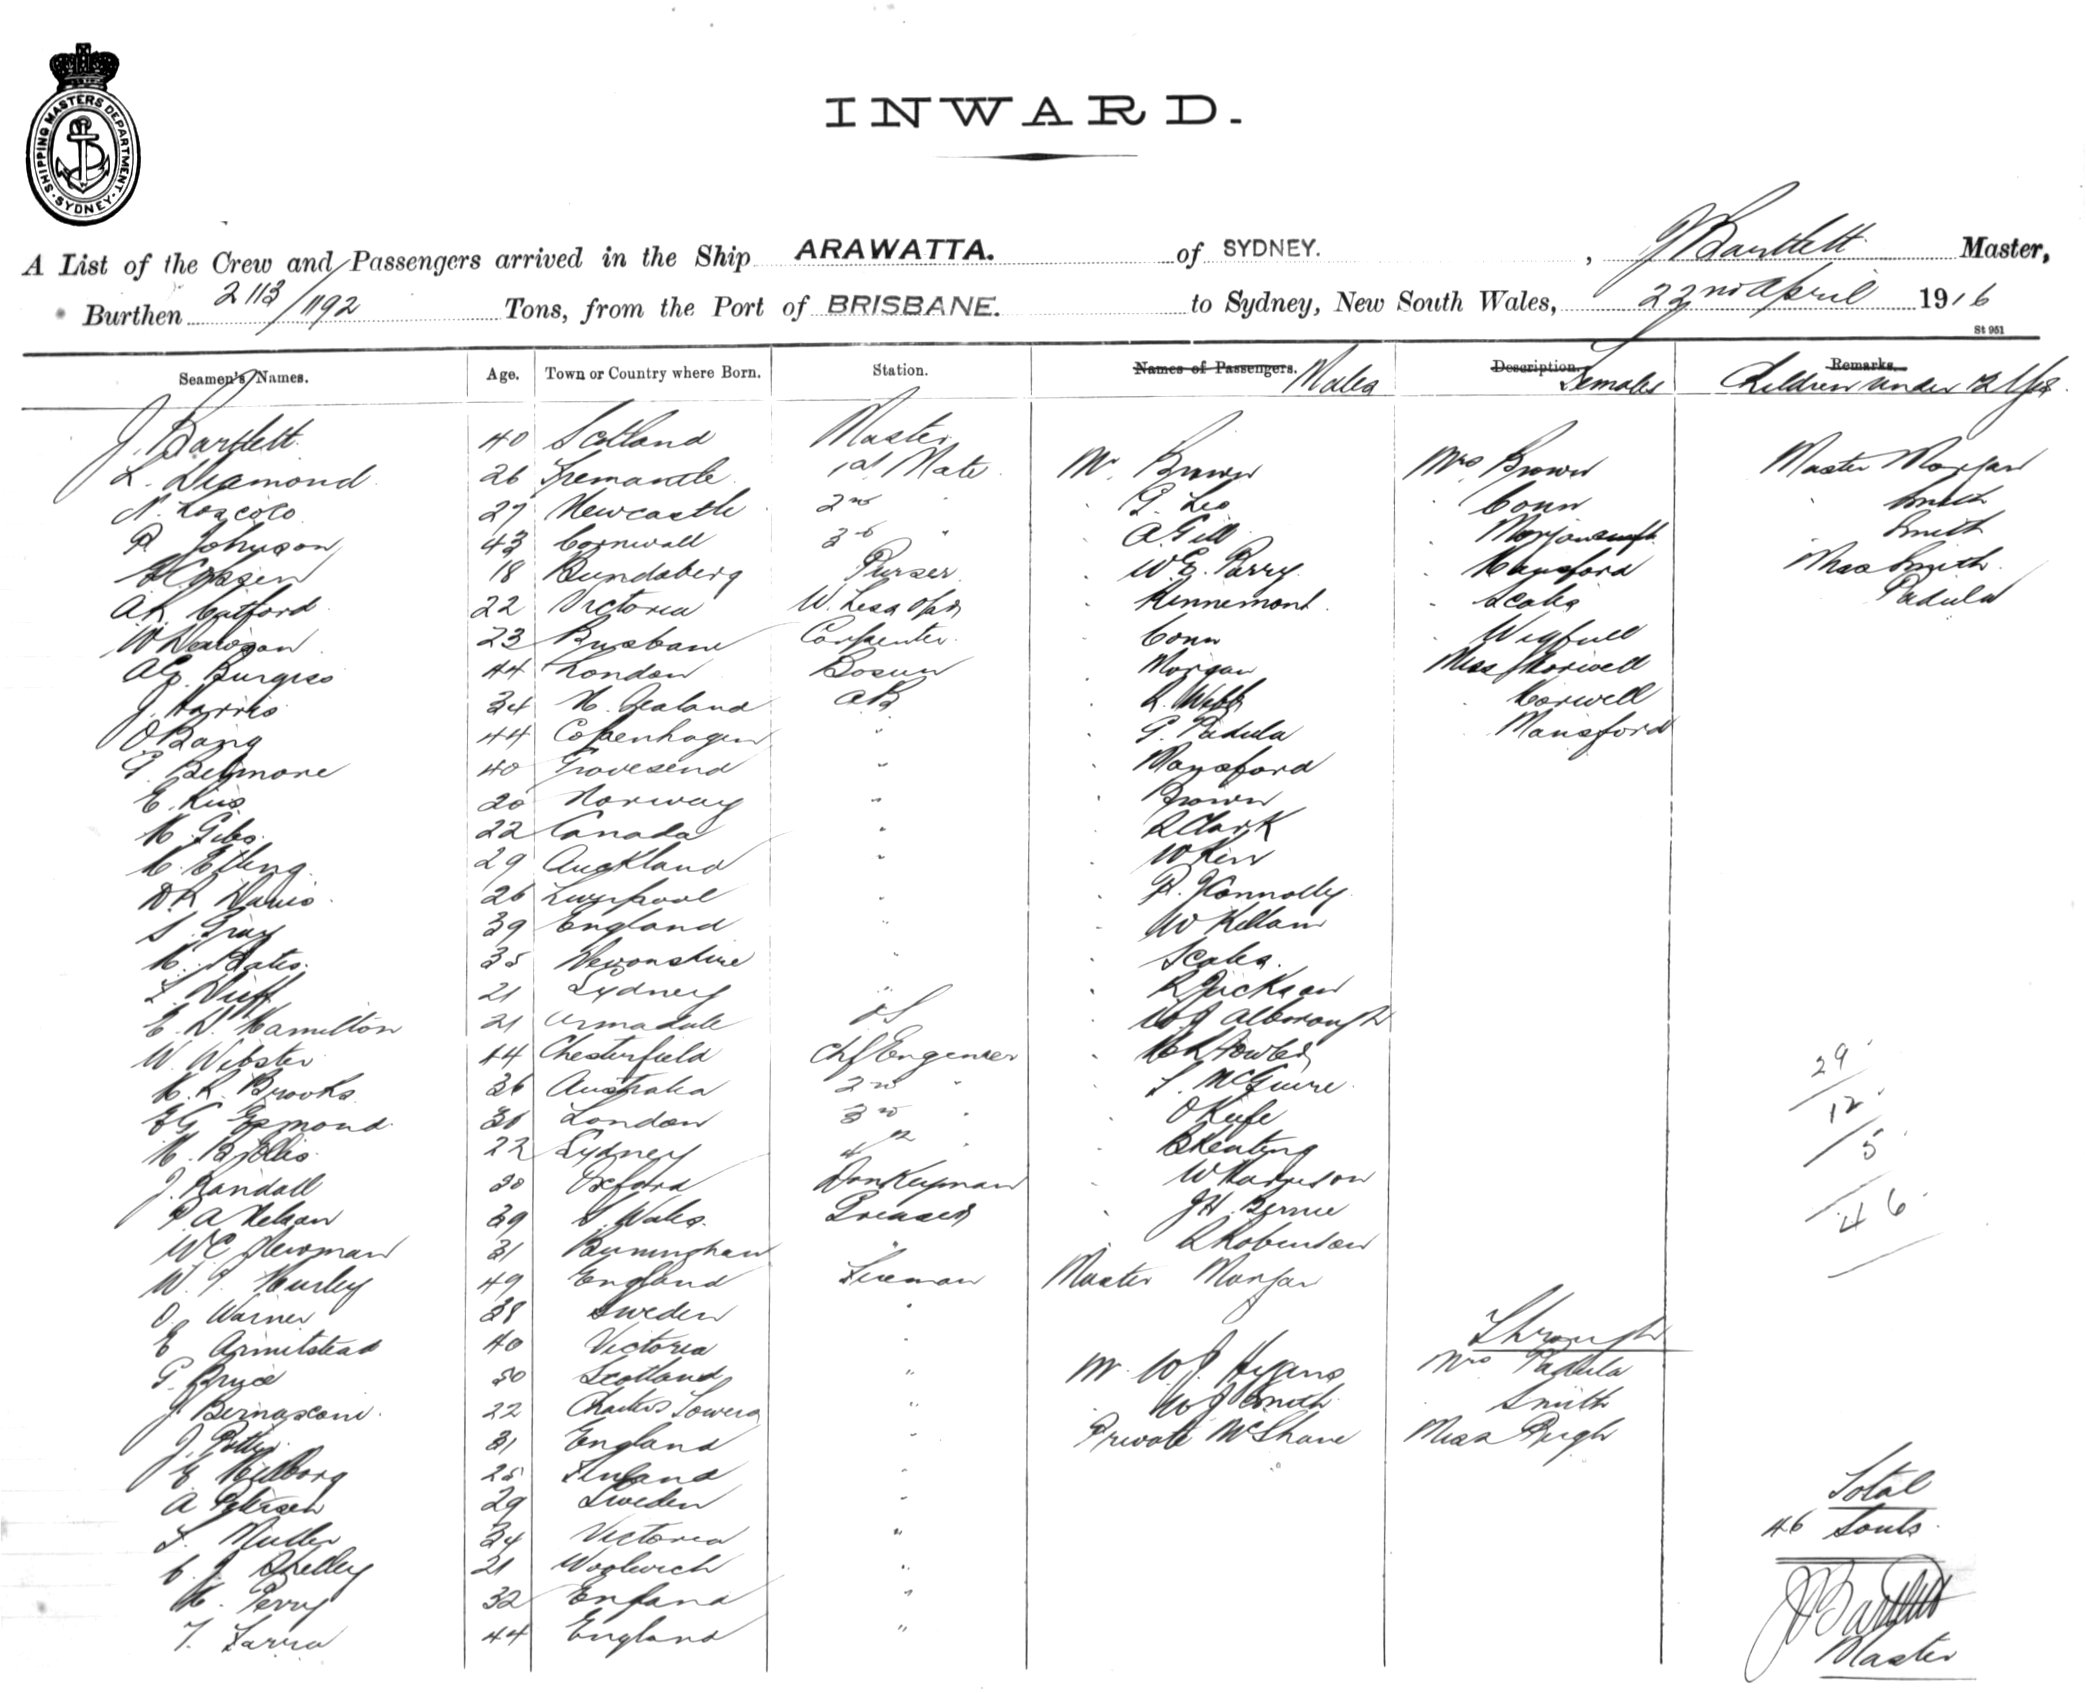 SHIPPING MASTERS DEPARTMENT · SYDNEY ·
INWARD.
A List of the Crew and Passengers arrived in the Ship ARAWATTA. of SYDNEY. , J Bartlett Master,
Burthen 2113/1192 Tons, from the Port of BRISBANE. to Sydney, New South Wales, 22nd April 1916
St 951
Seamen's Names. Age. Town or Country where Born. Station. Names of Passengers. Males Description Females Remarks. Children under 12 Yrs.
J. Bartlett 40 Scotland Master
L. Diamond 26 Fremantle 1st Mate Mr Brown Mrs Brown Master Morgan
N. Loscolo 27 Newcastle 2nd " G. Leo " Conn Smith
P. Johnson 43 Cornwall 3rd " A. Gill " Morgan Smith
18 Bundaberg Purser W. E. Parry " Mansford Miss Smith
A.R. Catford 22 Victoria W. Less Opr Kennemont " Scales Padula
23 Brisbane Carpenter Conn Wigfull
Burgess 44 London Bosun Morgan Miss Morwell
J. Harris 34 N. Zealand AB R. Webb Morwell
O Bang 44 Copenhagen " G. Padula Mansford
G. Belmore 40 Gravesend " Mansford
E. Kus 20 Norway " Brown
H. Gibs 22 Canada " R Clark
H. Etting 29 Auckland " W Kerr
D.R Davis 26 Liverpool " P. J Connolly
S. Gray 39 England " W Kellam
H. Bates 35 Devonshire " Scales
L. Duff 21 Sydney " R Jackson
E. D. Hamilton 21 Armadale OS W J Alborough
W. Webster 44 Chesterfield Chf Engineer 29
H. R. Brooks 36 Australia 2nd " J. McGuire 12
E G Esmond London 3rd " O Keefe 5
H. B Ellis 22 Sydney 4th " B Keating
J. Randall 30 Oxford Donkeyman W Harrison 46
P. A Nelson 39 S. Wales Greaser J H Bernie
W C Newman 31 Birmingham " R Robinson
W. J. Hurley 49 England Fireman Master Morgan
O. Warner 38 Sweden " Through
E Armitstead 40 Victoria " Mr W. J. Hyans Mrs Padula
G. Bruce 50 Scotland " W J Smith " Smith
J Bernasconi 22 Charters Towers " Private McShane Miss Pugh
J. Potter 31 England "
E Hedborg 25 Finland " Total
A Petersen 29 Sweden " 46 Souls
F. Muller 34 Victoria "
C. J. Shelley 21 Woolwich "
H. Perry 32 England " J Bartlett
T. Farra 44 England " Master